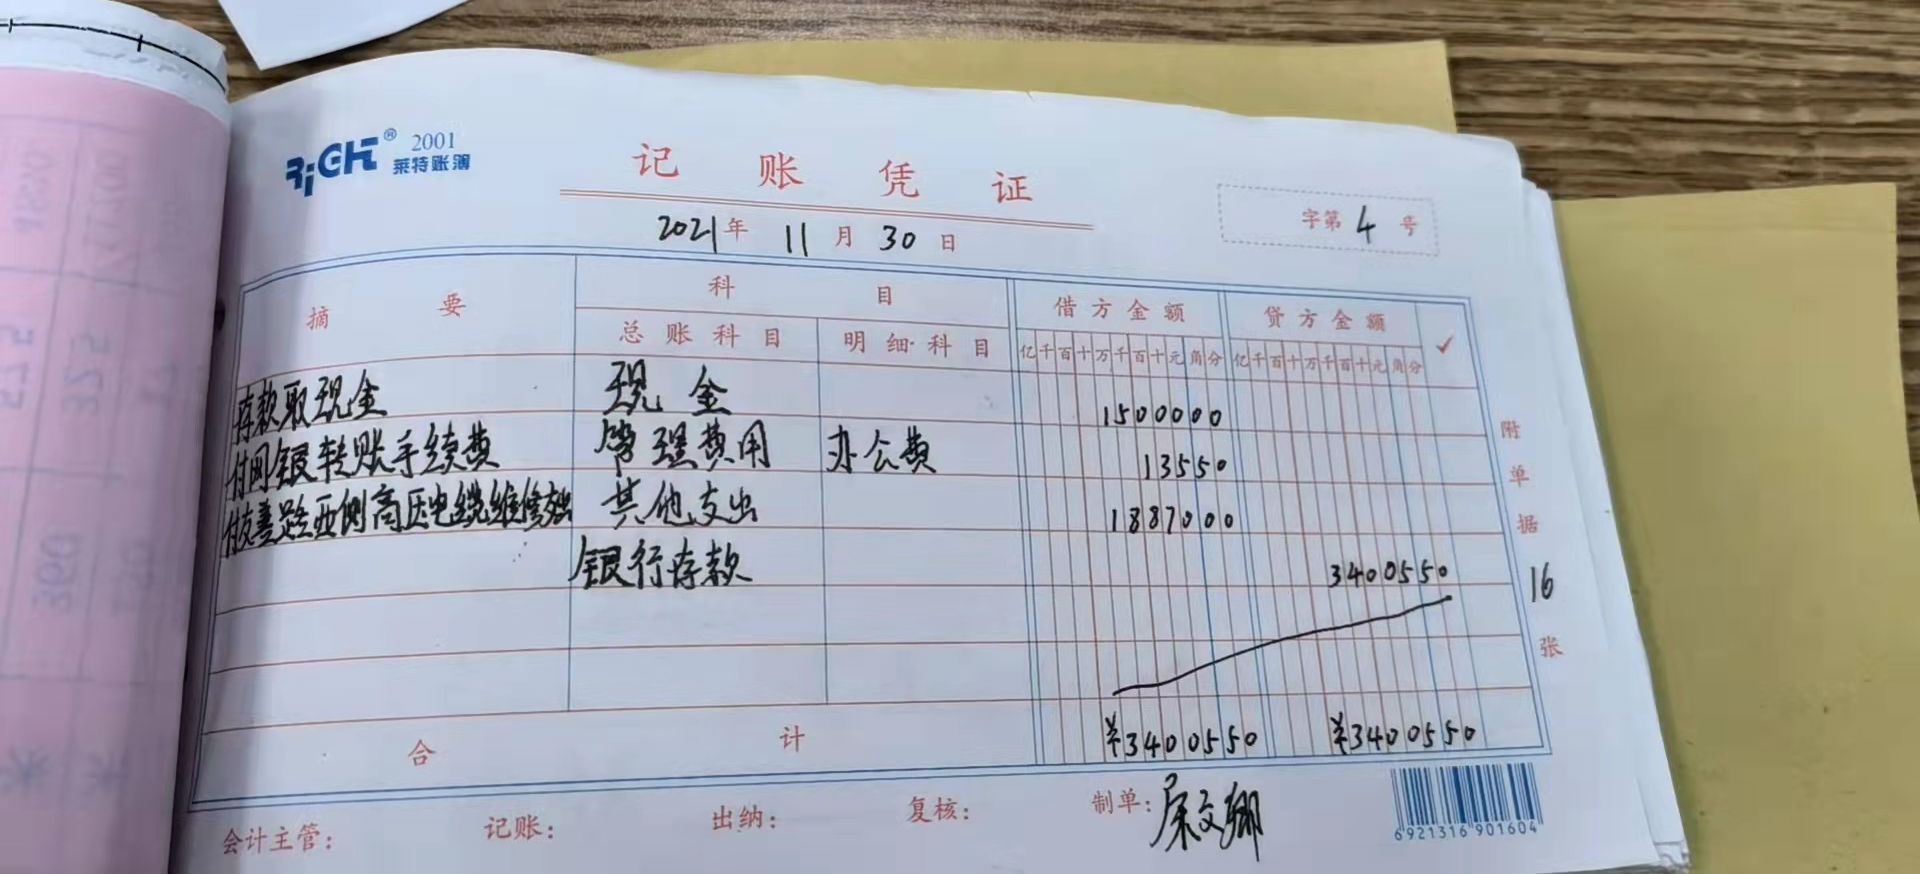 RiGHT® 2001
莱特账簿
记账凭证
2021年11月30日
字第4号
摘要 科目 借方金额 贷方金额 ✓
总账科目 明细科目 亿千百十万千百十元角分 亿千百十万千百十元角分
存款取现金 现金 1500000
付网银转账手续费 管理费用 办公费 13550
付友善路西侧高压电缆维修 其他支出 1887000
银行存款 3400550
合计 ¥3400550 ¥3400550
附单据16张
会计主管: 记账: 出纳: 复核: 制单:
6921316901604